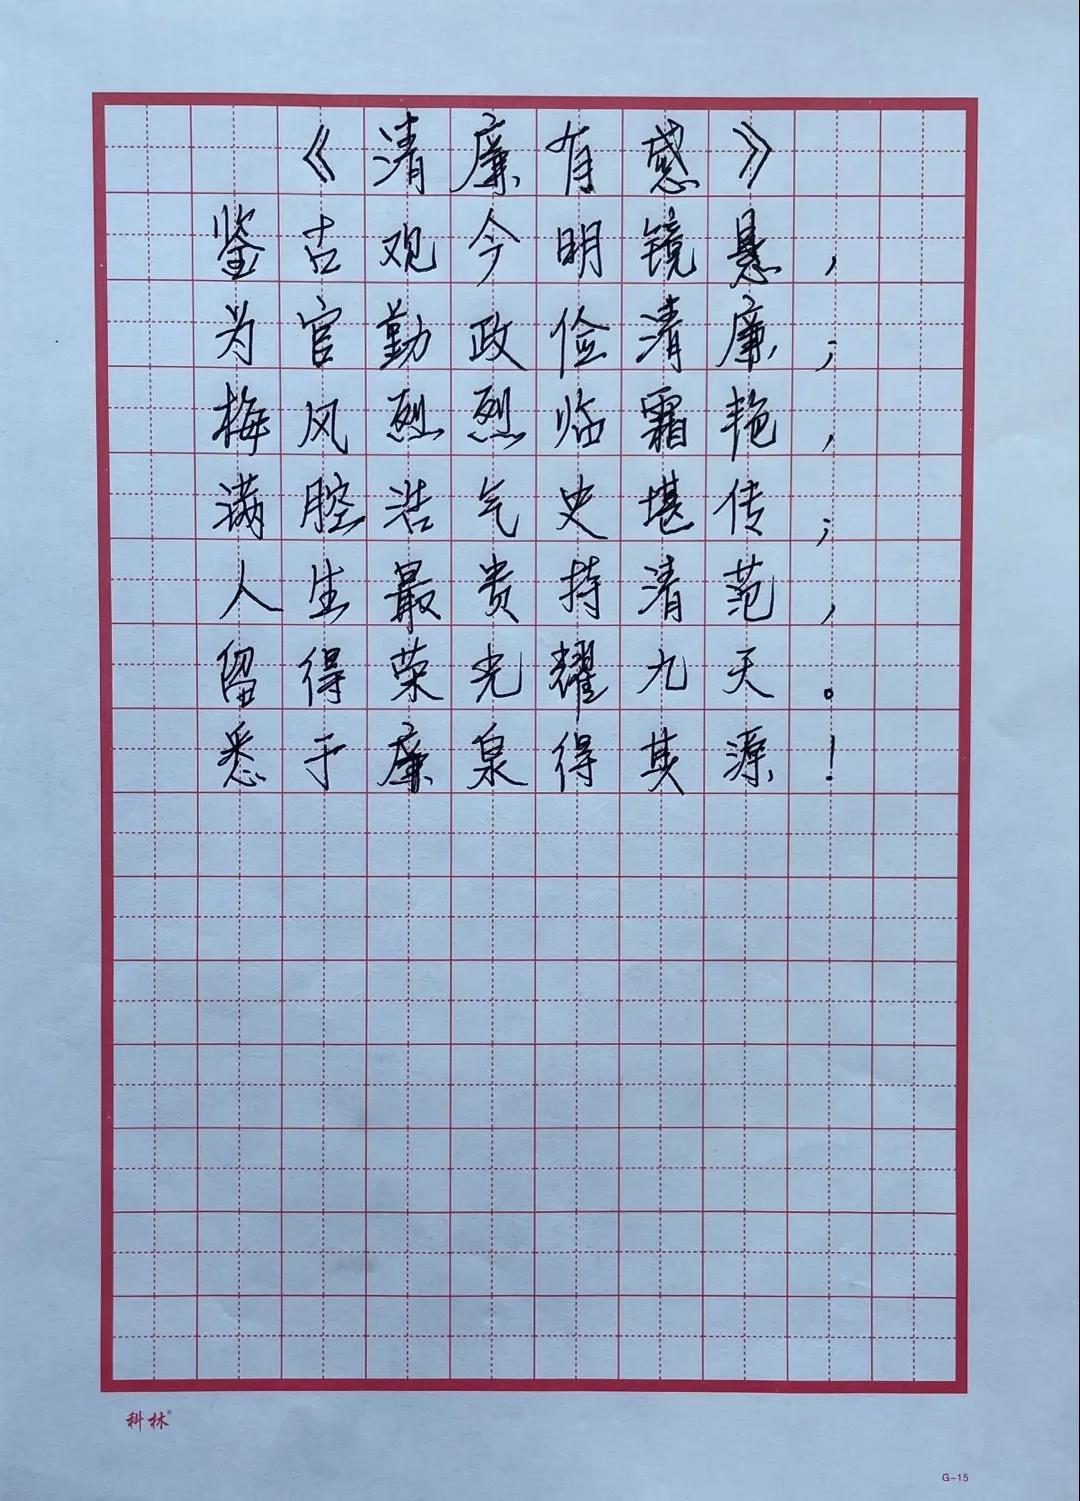 《清廉有感》
鉴古观今明镜悬，
为官勤政俭清廉；
梅风烈烈临霜艳，
满腔浩气史堪传；
人生最贵持清范，
留得荣光耀九天。
悉于廉泉得其源！
科林®
G-15